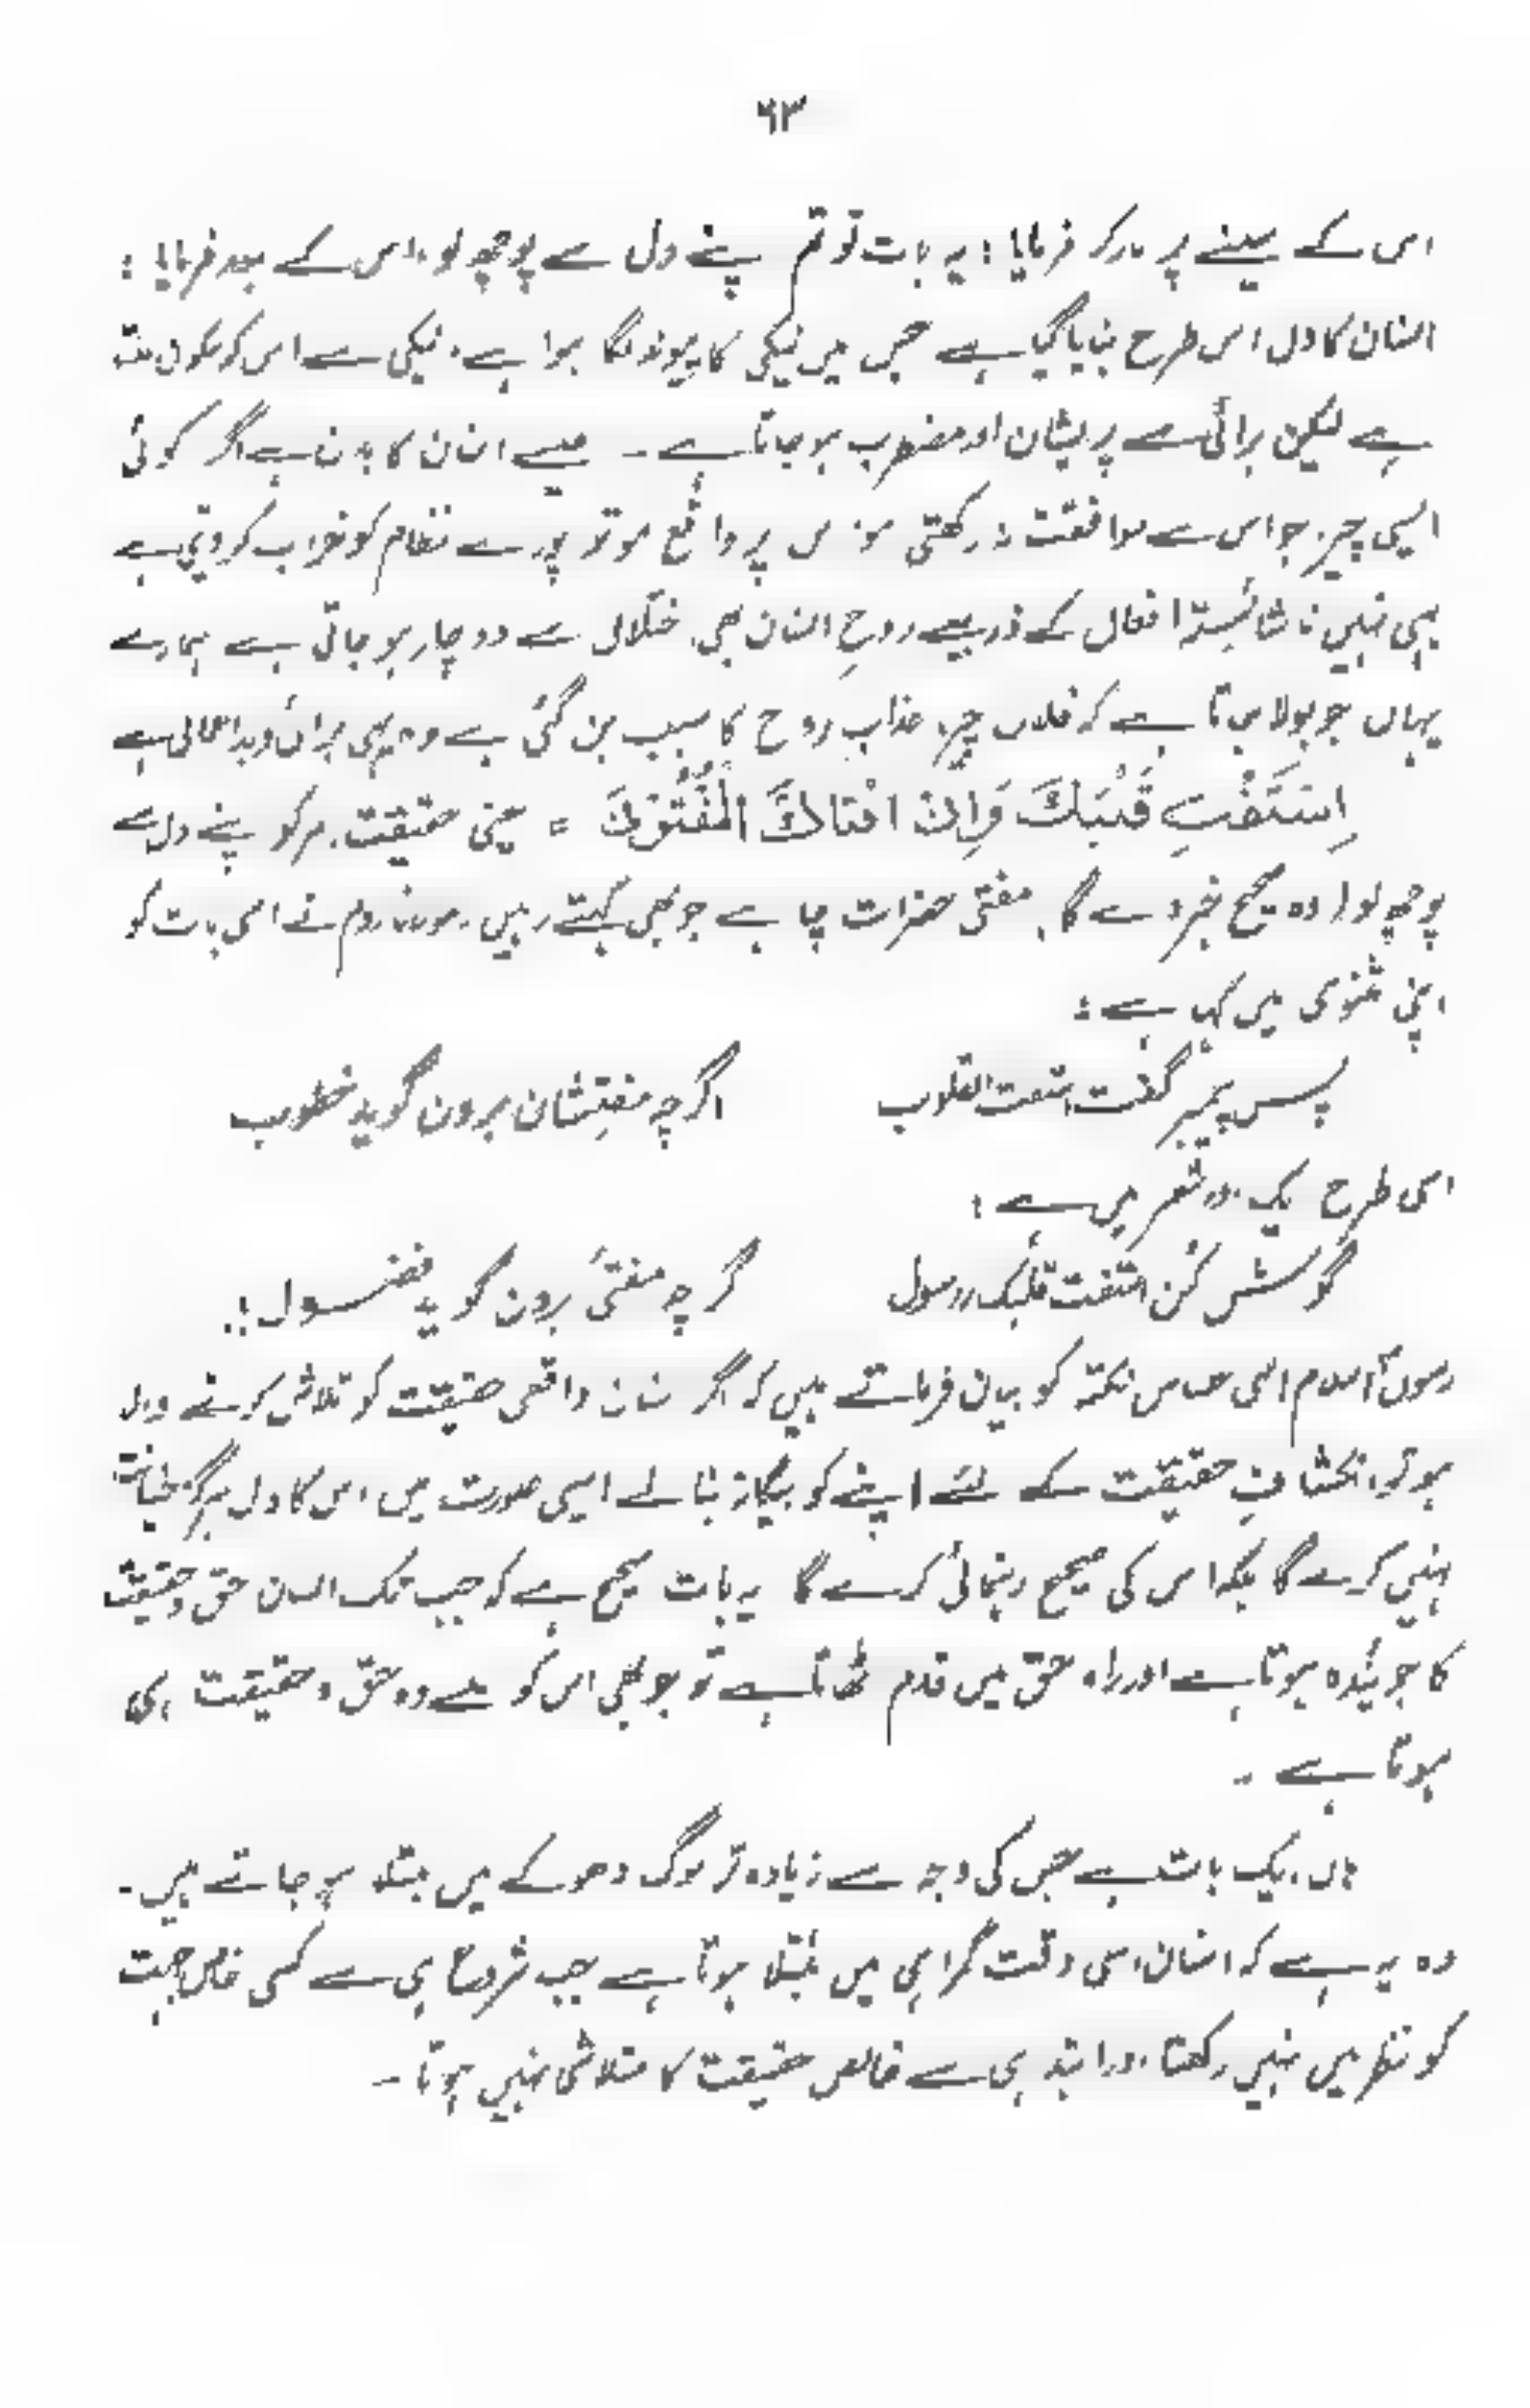 ۶۳
اس کے سینے پر مار کر فرمایا : یہ بات تو تم اپنے دل سے پوچھ لو، اس کے بعد فرمایا :
انسان کا دل اس طرح بنایا گیا ہے جس میں نیکی کا پیوند لگا ہوا ہے، نیکی سے اس کو سکون ملتا
ہے لیکن برائی سے پریشان اور مضطرب ہو جاتا ہے ۔ جیسے انسان کا بدن ہے اگر کوئی
ایسی چیز جو اس سے موافقت نہ رکھتی ہو اس پر واقع ہو تو پورے نظام کو خراب کر دیتی ہے
یہی نہیں ناشائستہ افعال کے ذریعے روحِ انسان بھی اختلال سے دوچار ہو جاتی ہے ہمارے
یہاں جو بولا جاتا ہے کہ فلاں چیز عذاب روح کا سبب بن گئی ہے وہ یہی برائی و بد اعمالی ہے
اِسْتَفْتِ قَلْبَكَ وَاِنْ اَفْتَاكَ الْمُفْتُوْنَ = یعنی حقیقت امر کو اپنے دل سے
پوچھ لو! وہ صحیح خبر دے گا، مفتی حضرات چاہے جو بھی کہتے رہیں ۔ مولانا روم نے اسی بات کو
اپنی مثنوی میں کہا ہے :
پس پیمبر گفت استفت القلوب اگرچہ مفتِشان برون گوید خطوب
اسی طرح ایک اور شعر میں ہے :
گوش کُن استفت قلبک از رسول گرچہ مفتیٔ برون گوید فضول !.
رسولؐ اسلام اسی حساس نکتہ کو بیان فرماتے ہیں کہ اگر انسان واقعی حقیقت کو تلاش کرنے والا
ہو تو انکشافِ حقیقت کے لئے اپنے کو بیگانہ بنا لے ایسی صورت میں اس کا دل ہرگز خیانت
نہیں کرے گا بلکہ اس کی صحیح رہنمائی کرے گا یہ بات صحیح ہے کہ جب تک انسان حق و حقیقت
کا جوئندہ ہوتا ہے اور راہ حق میں قدم اٹھاتا ہے تو جو بھی اس کو ملے وہ حق و حقیقت ہی
ہوتا ہے ۔
ہاں ایک بات ہے جس کی وجہ سے زیادہ تر لوگ دھوکے میں مبتلا ہو جاتے ہیں ۔
وہ یہ ہے کہ انسان اسی وقت گمراہی میں مُبتلا ہوتا ہے جب شروع ہی سے کسی خاص جہت
کو نظر میں نہیں رکھتا اور ابتدا ہی سے خالص حقیقت کا متلاشی نہیں ہوتا ۔